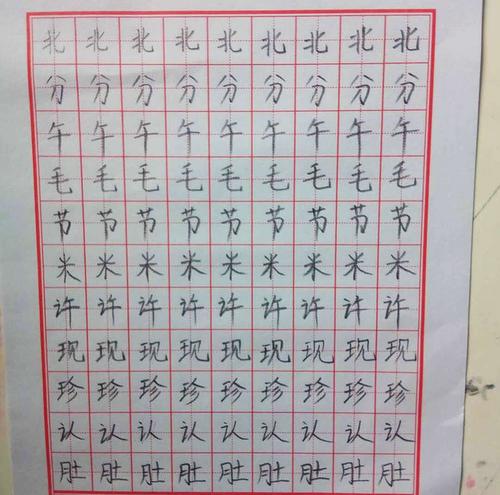 北北北北北北北北北
分分分分分分分分分
午午午午午午午午午
毛毛毛毛毛毛毛毛毛
节节节节节节节节节
米米米米米米米米米
许许许许许许许许许
现现现现现现现现现
珍珍珍珍珍珍珍珍珍
认认认认认认认认认
肚肚肚肚肚肚肚肚肚